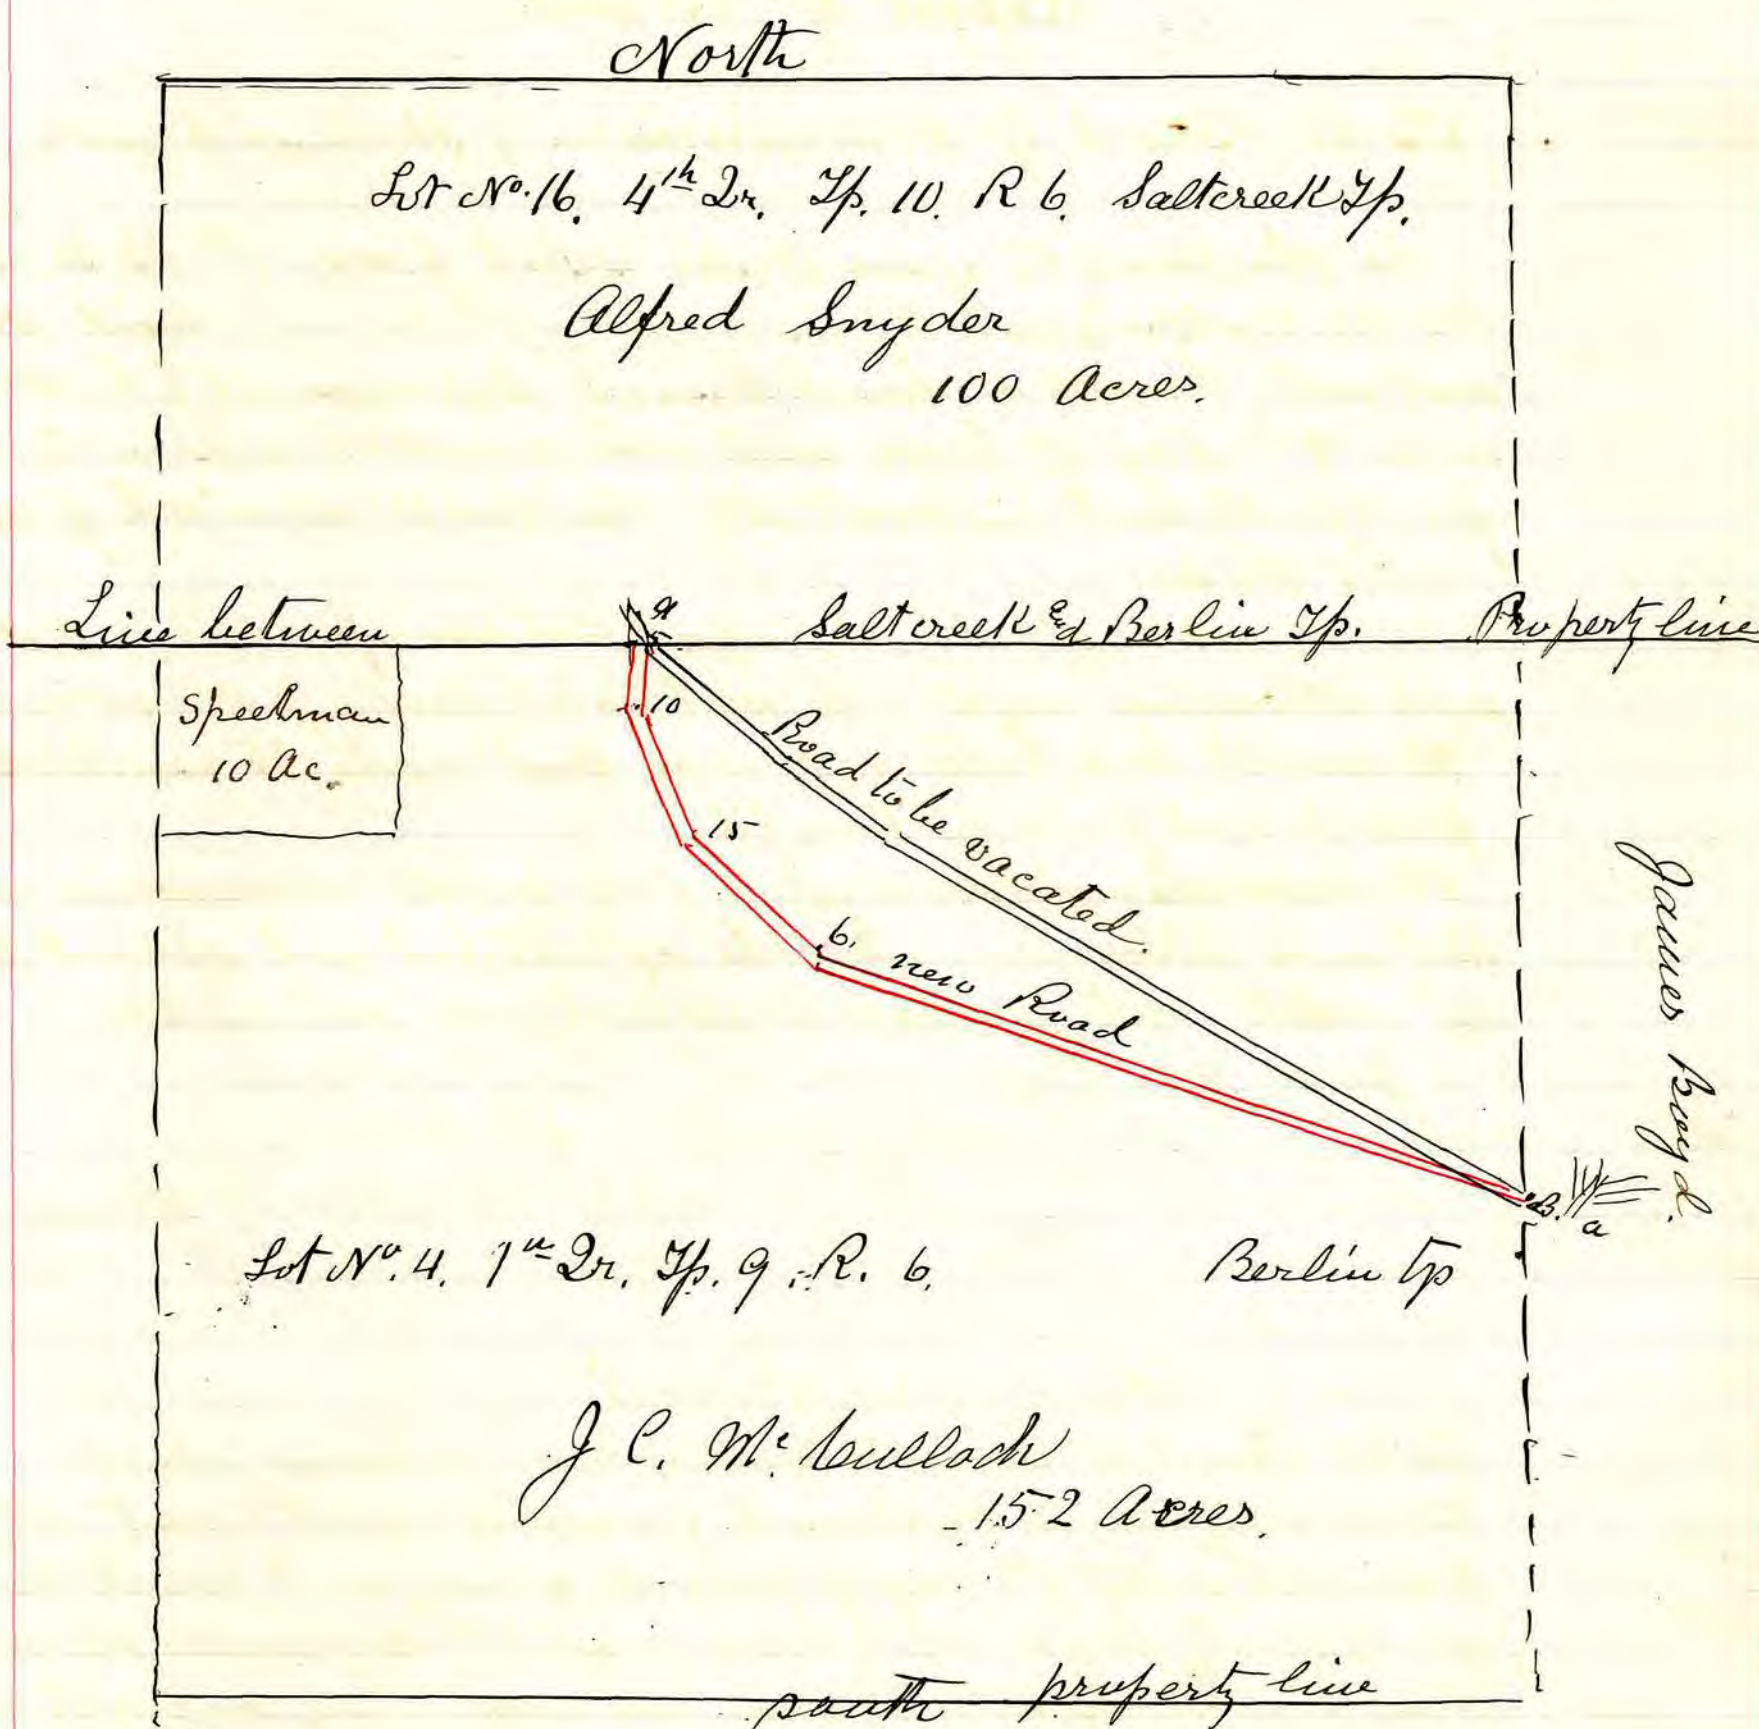 North
Lot No. 16. 4th Qr. Tp. 10. R 6. Saltcreek Tp.
Alfred Snyder
100 Acres.
Line between Saltcreek and Berlin Tp. Property line
Speelman
10 Ac.
10
15
6.
Road to be vacated.
new Road
James Boyd.
B.
a
Lot No. 4. 1st Qr. Tp. 9. R. 6. Berlin tp
J C. Mc. Culloch
152 Acres.
south property line